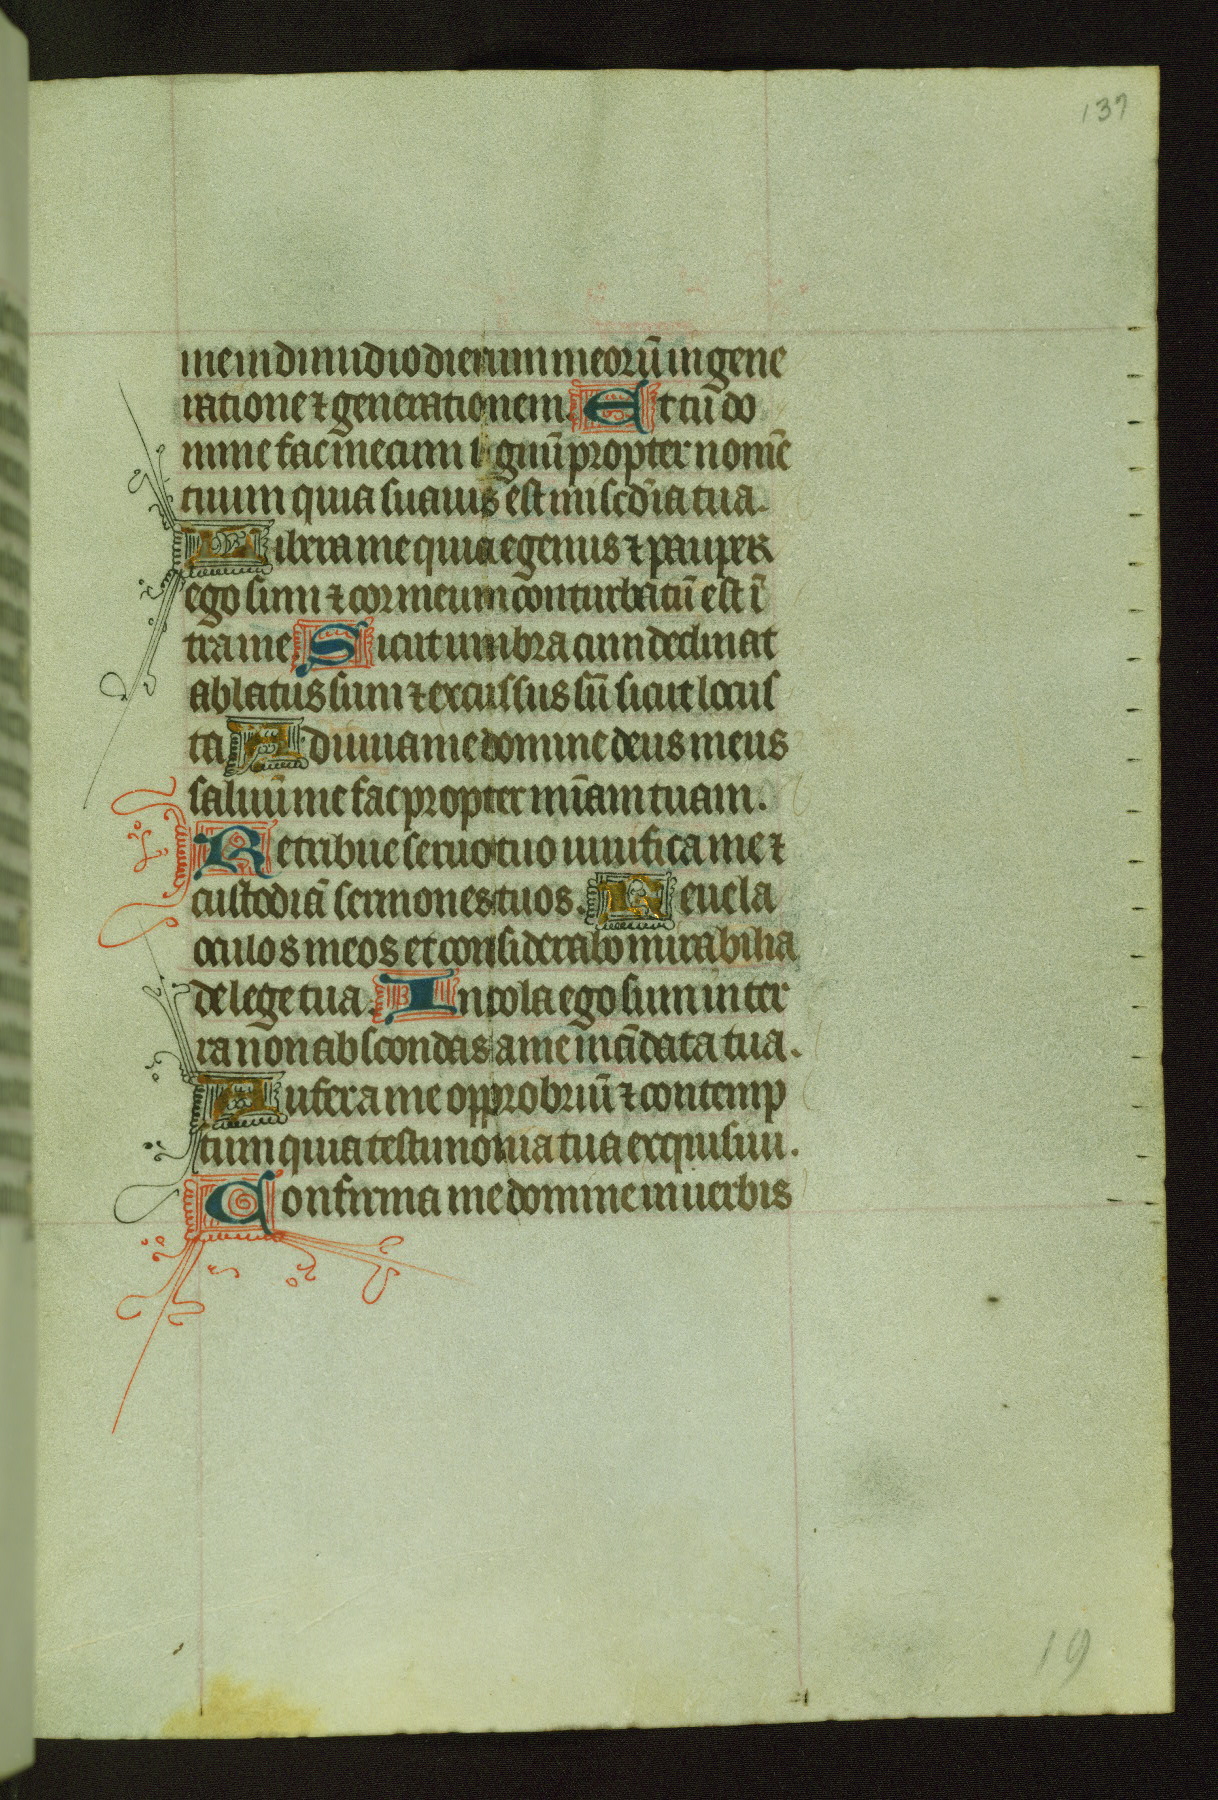 137
me in dimidio dierum meorū in gene
ratione ⁊ generationem. Et tu do
mine fac mecum signū propter nomē
tuum quia suauis est misc̄dia tua.
Libera me quia egenus ⁊ pauper
ego sum ⁊ cor meum conturbatū est ī
tra me. Sicut umbra cum declinat
ablatus sum ⁊ excussus sū sicut locus
ta Adiuua me domine deus meus
saluū me fac propter mīam tuam.
Retribue seruo tuo uiuifica me ⁊
custodiā sermones tuos. Reuela
oculos meos et considerabo mirabilia
de lege tua. Incola ego sum in ter
ra non abscondas a me mādata tua.
Aufer a me opprobriū ⁊ contemp
tum quia testimonia tua exquisiui.
Confirma me domine in uerbis
19